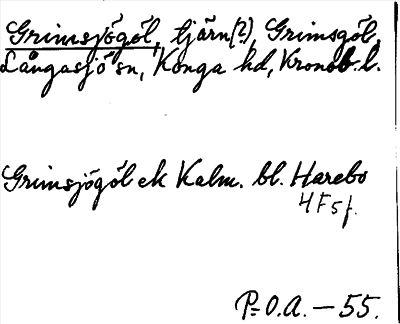 Grimsjögöl, tjärn(?), Grimsgöl,
Långasjö sn, Konga hd, Kronob. l.
Grimsjögöl ek Kalm. bl. Harebo
4F5f.
P-O.A. – 55.